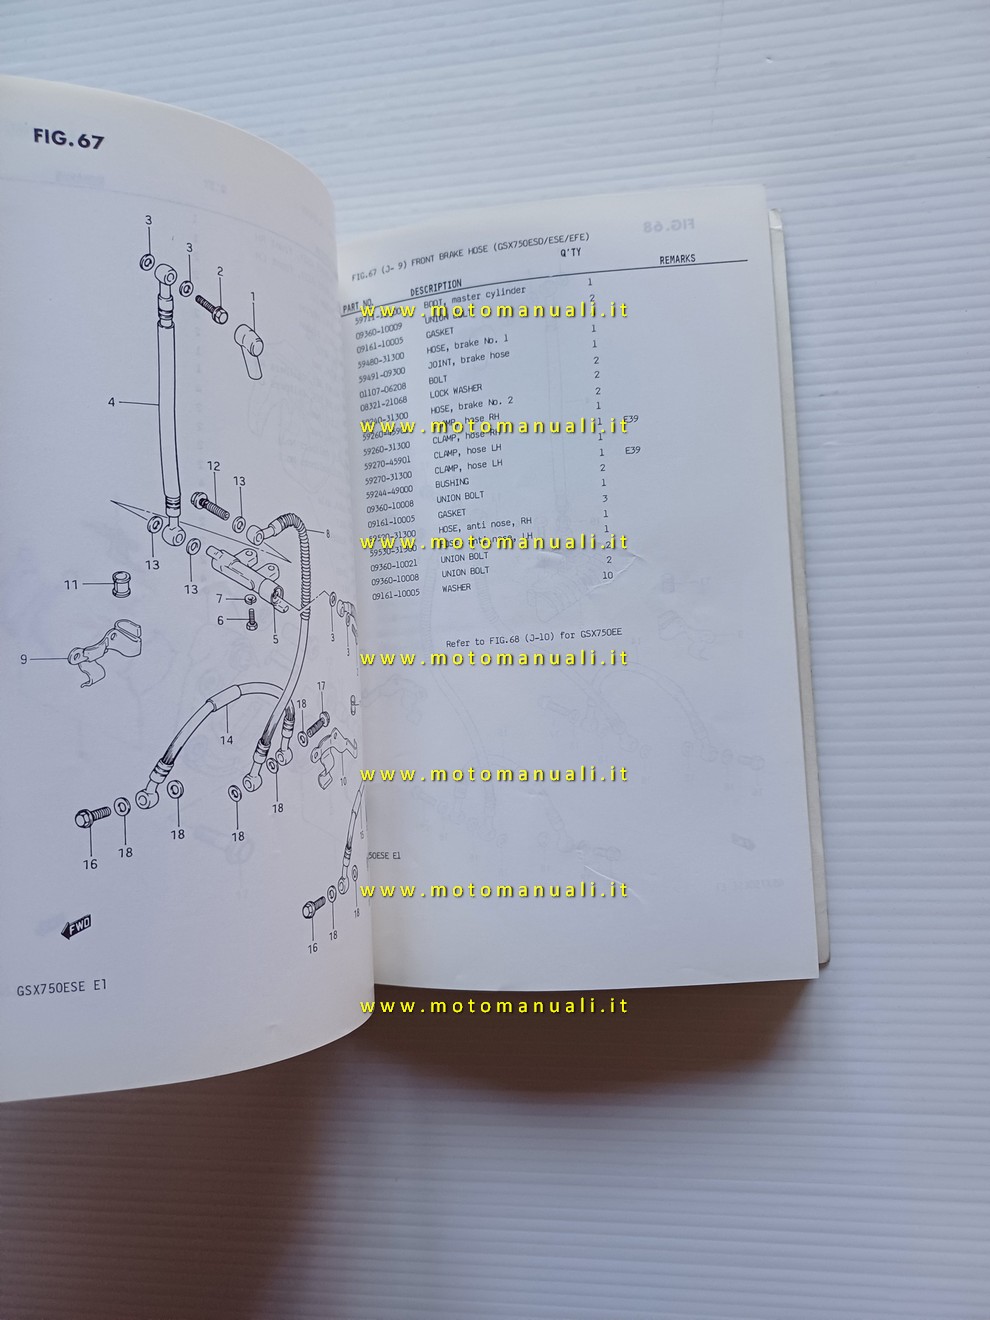 FIG.67
3
3
2
1
4
12
13
8
13
13
11
7
6
5
3
3
9
17
18
14
10
18
18
18
18
16
15
18
18
16
FWD
GSX750ESE E1
50ESE E1
FIG.68
FIG.67 (J- 9) FRONT BRAKE HOSE (GSX750ESD/ESE/EFE)
PART NO. DESCRIPTION Q'TY REMARKS
BOOT, master cylinder 1
09360-10009 UNION BOLT 2
09161-10005 GASKET
59480-31300 HOSE, brake No. 1 1
59491-09300 JOINT, brake hose 1
01107-06208 BOLT 2
08321-21068 LOCK WASHER 2
HOSE, brake No. 2 2
CLAMP, hose RH 1 E39
59260-31300 CLAMP, hose RH 1
59270-45901 CLAMP, hose LH 1 E39
59270-31300 CLAMP, hose LH 2
59244-49000 BUSHING 1
09360-10008 UNION BOLT 3
09161-10005 GASKET 1
HOSE, anti nose, RH 1
59530-31300 HOSE, anti nose, LH
09360-10021 UNION BOLT 2
09360-10008 UNION BOLT 2
09161-10005 WASHER 10
Refer to FIG.68 (J-10) for GSX750EE
www.motomanuali.it
www.motomanuali.it
www.motomanuali.it
www.motomanuali.it
www.motomanuali.it
www.motomanuali.it
www.motomanuali.it